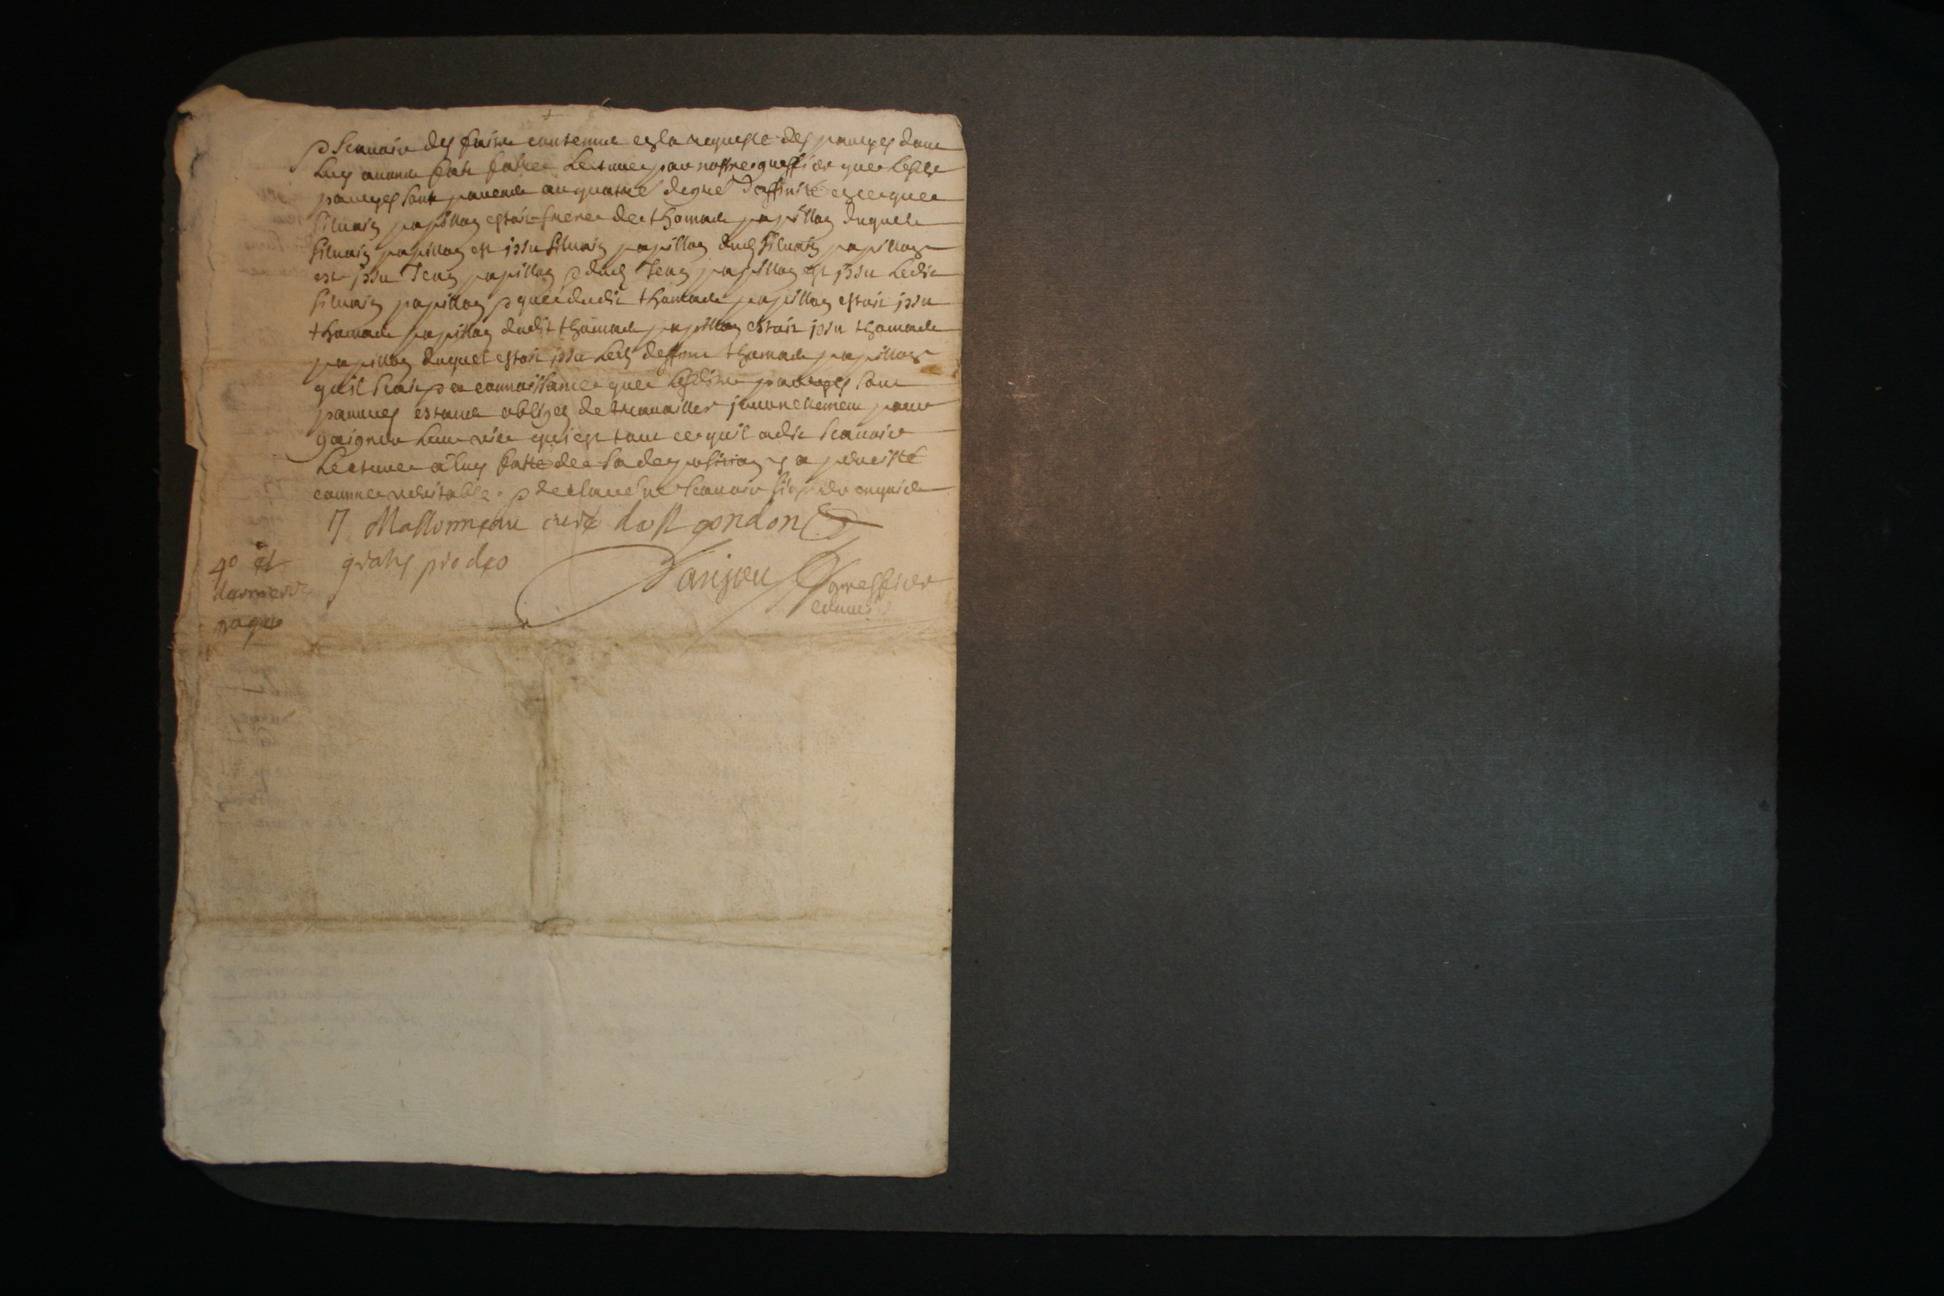 & scauoir des faits contenue en la requeste des partyes dont
Luy auons fait faire Lecture par nostre greffier que lesd
partyes sont parente au quatre degré d'affinité en ce que
siluain papillon estoit frere de thomas papillon duquel
siluain papillon est issu siluain papillon dud siluain papillon
est issu Jean papillon & dud Jean papillon est issu Ledit
siluain papillon & que dudit thomas papillon estoit issu
thomas papillon dudit thomas papillon estoit issu thomas
papillon duquel estoit issu Led deffunt thomas papillon
qu'il scait & a connoissance que Lesdites partyes sont
pauures estant obliges de trauailler journellement pour
gaigner Leur vie qui est tout ce qu'il a dit scauoir
Lecture a luy faite de sa deposition y a persisté
comme veritable & declaré scauoir signer enquis
Massonneau curé de st gondon
gratis pro deo
4e et
derniere
page
greffier
commis